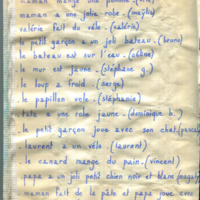 maman mange une pomme.
maman a une jolie robe. (maylis)
valérie fait du vélo. (valérie)
le petit garçon a un joli bateau. (bruno)
le bateau est sur l'eau. (céline)
le mur est jaune. (stéphane g.)
le loup a froid. (serge)
le papillon vole. (stéphanie)
tata a une robe jaune. (dominique b.)
le petit garçon joue avec son chat. (pascal
laurent a un vélo. (laurent)
le canard mange du pain. (vincent)
papa a un joli petit chien noir et blanc
maman fait de la pâte et papa joue avec